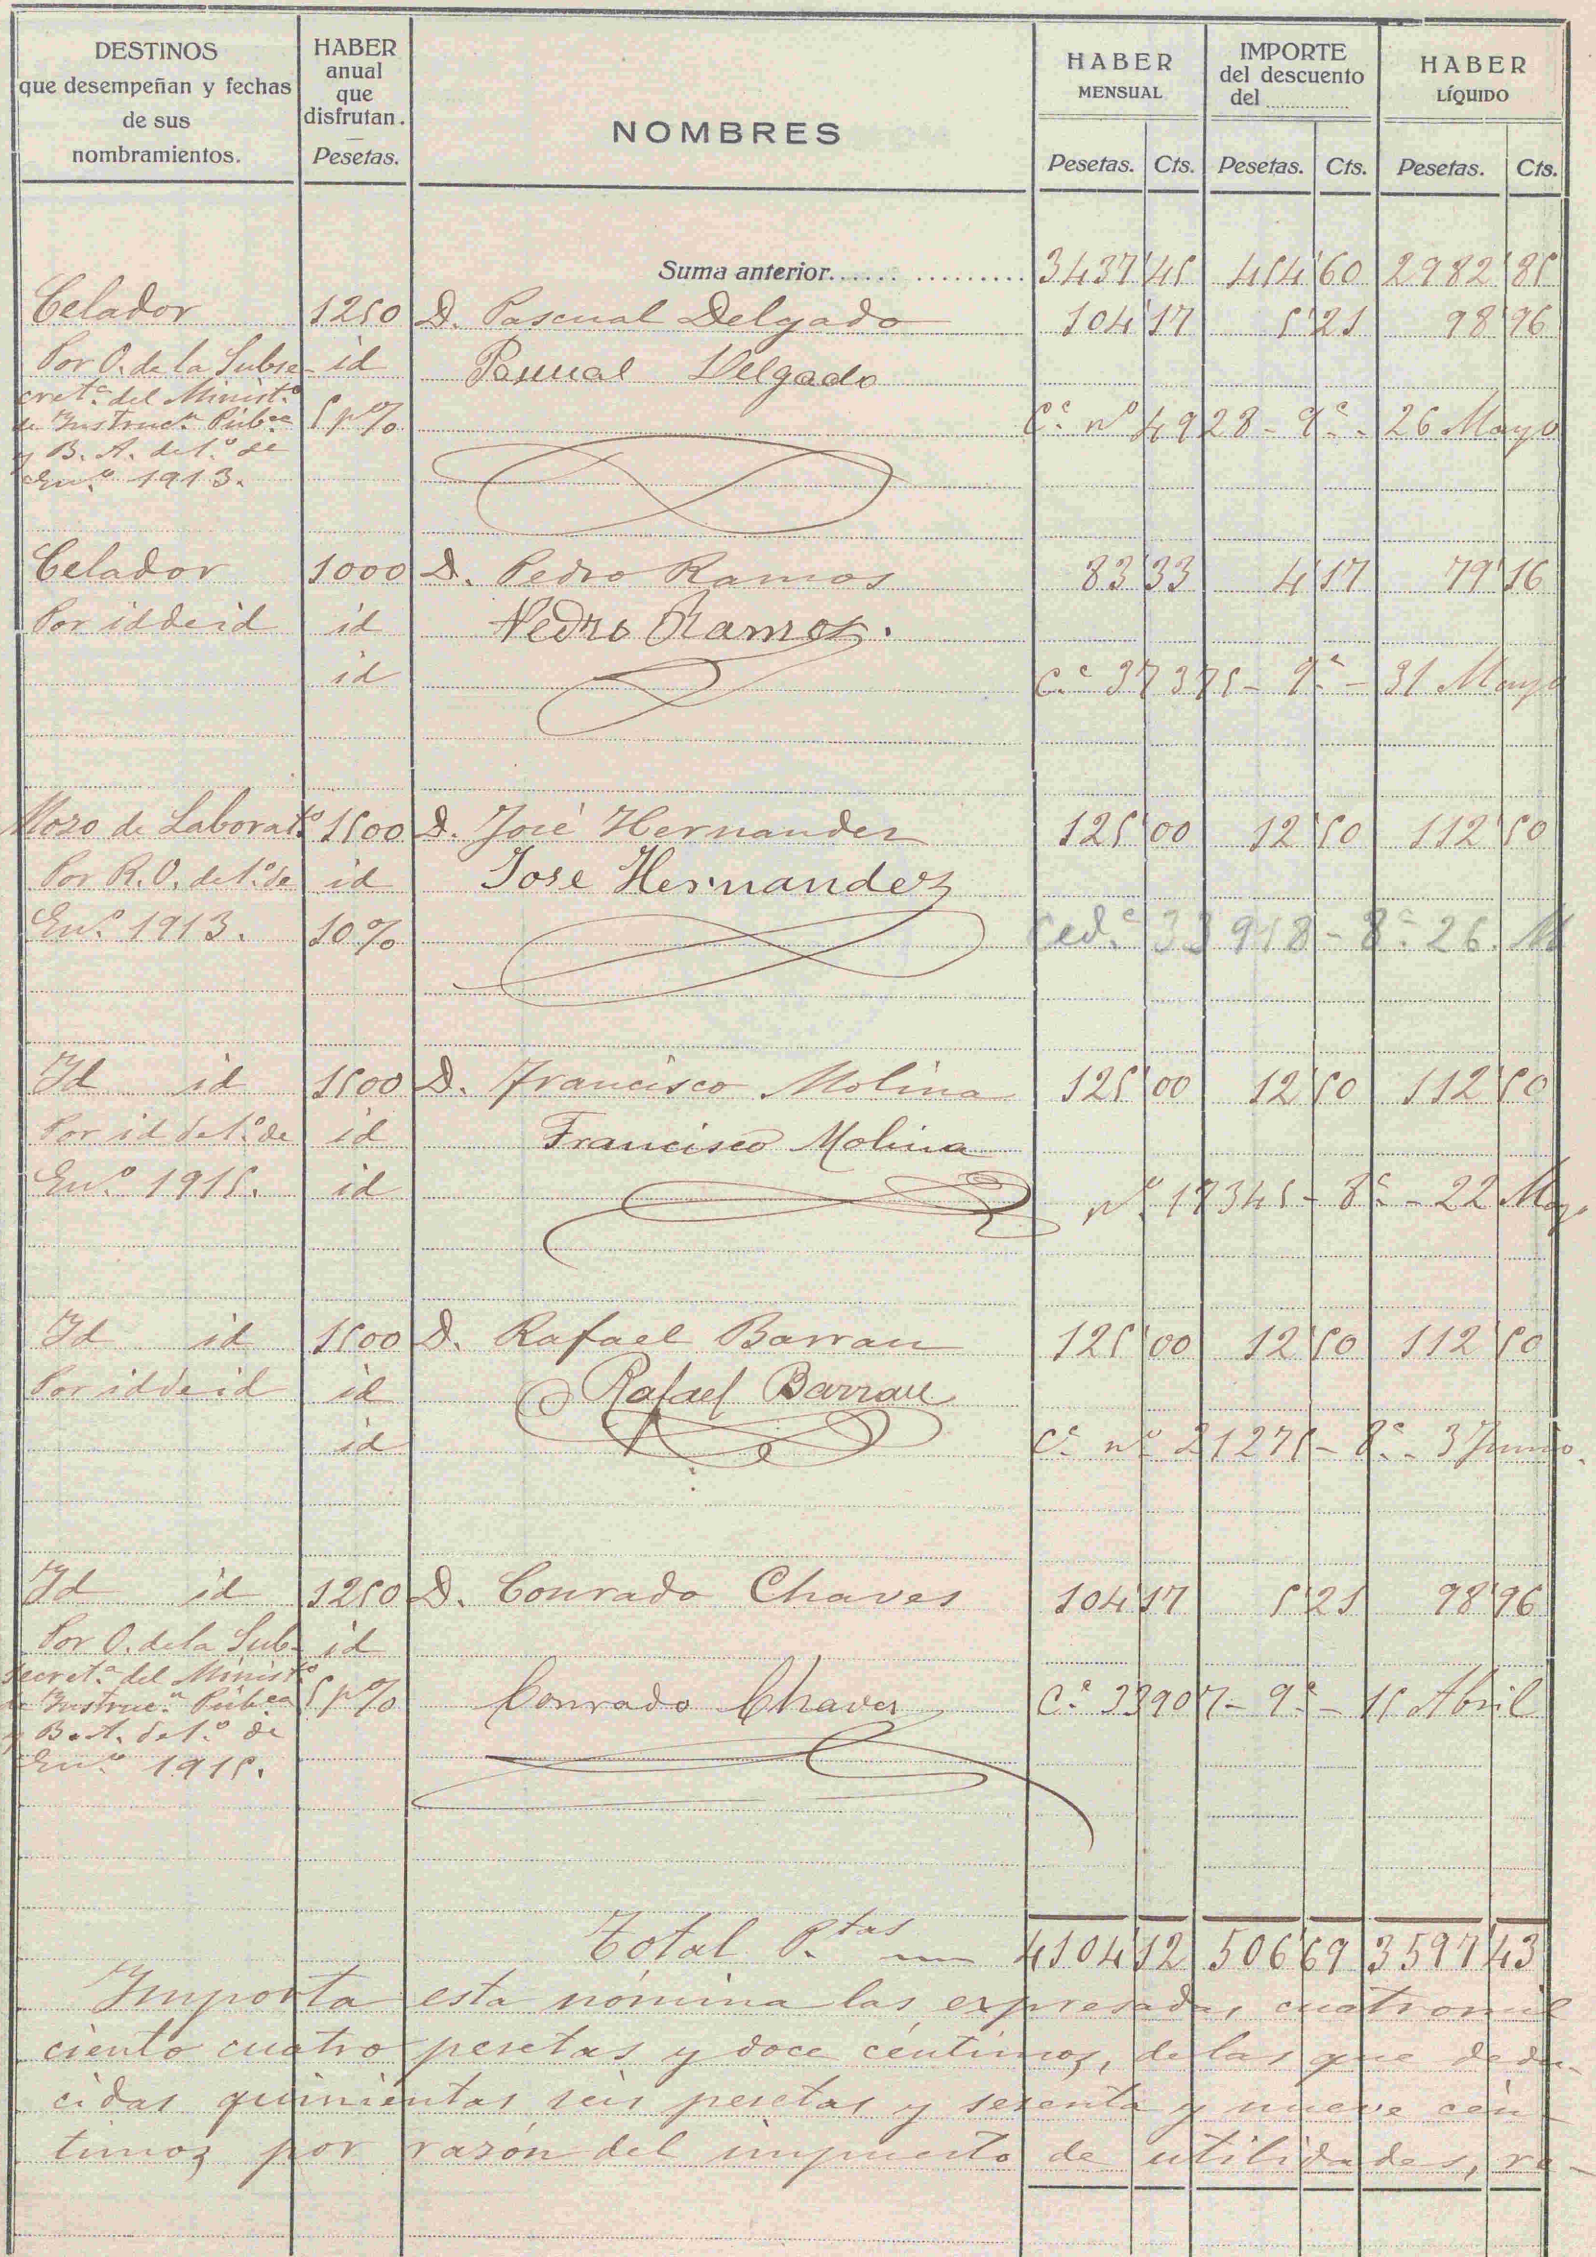 DESTINOS que desempeñan y fechas de sus nombramientos. HABER anual que disfrutan. Pesetas. NOMBRES HABER MENSUAL IMPORTE del descuento del HABER LÍQUIDO
Pesetas. Cts. Pesetas. Cts. Pesetas. Cts.
Suma anterior 3437'45 454'60 2982'85
Celador 1250 D. Pascual Delgado 104'17 5'21 98'96
Por O. de la Subse- id Pascual Delgado
cret.ª del Minist.º
de Instruc.n Púb.ca 5 p% C.ª nº 4928 - 9.ª - 26 Mayo
y B. A. de 1.º de
En.º 1913.
Celador 1000 D. Pedro Ramos 83'33 4'17 79'16
Por id de id id Pedro Ramos.
id C.ª 37375 - 9.ª - 31 Mayo
Mozo de Laborat.º 1500 D. José Hernandez 125'00 12'50 112'50
Por R. O. de 1.º de id Jose Hernandez
En.º 1913. 10% Ced.ª 33918 - 8.ª 26. M
Id id 1500 D. Francisco Molina 125'00 12'50 112'50
Por id de 1.º de id Francisco Molina
En.º 1915. id nº 17345 - 8.ª - 22 May
Id id 1500 D. Rafael Barrau 125'00 12'50 112'50
Por id de id id Rafael Barrau
id C.ª nº 21275 - 8.ª - 3 Junio.
Id id 1250 D. Conrado Chaves 104'17 5'21 98'96
Por O. de la Sub- id
secret.ª del Minist.º
de Instruc.n Púb.ca 5 p% Conrado Chaves C.ª 33907 - 9.ª - 15 Abril
y B. A. de 1.º de
En.º 1915.
Total P.tas 4104'12 506'69 3597'43
Importa esta nómina las expresadas cuatromil
ciento cuatro pesetas y doce céntimos, de las que dedu-
cidas quinientas seis pesetas y sesenta y nueve cén-
timos por razón del impuesto de utilidades, re-